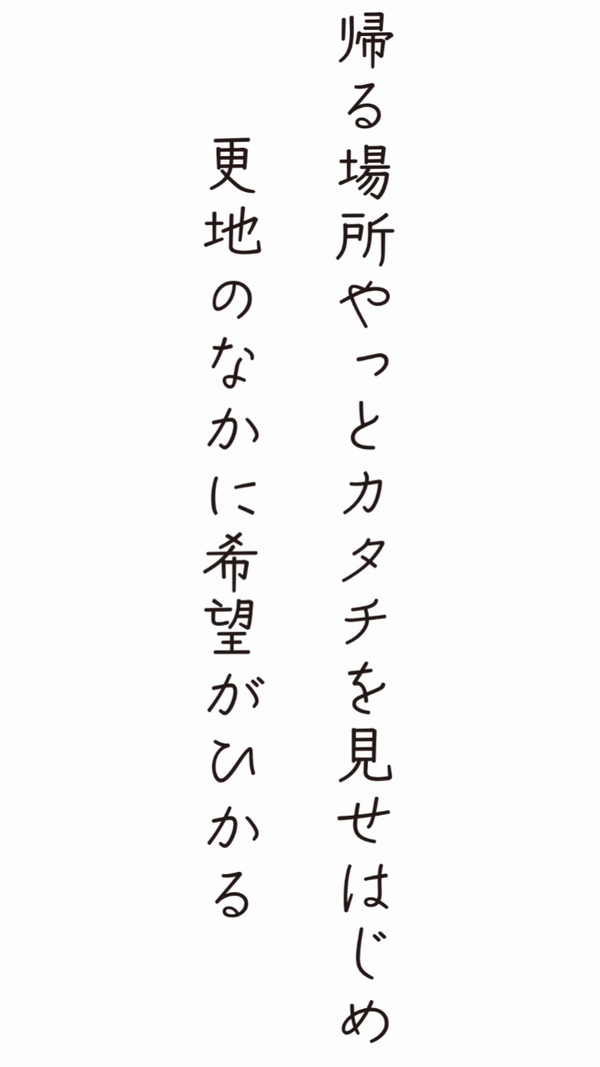 帰る場所やっとカタチを見せはじめ
更地のなかに希望がひかる